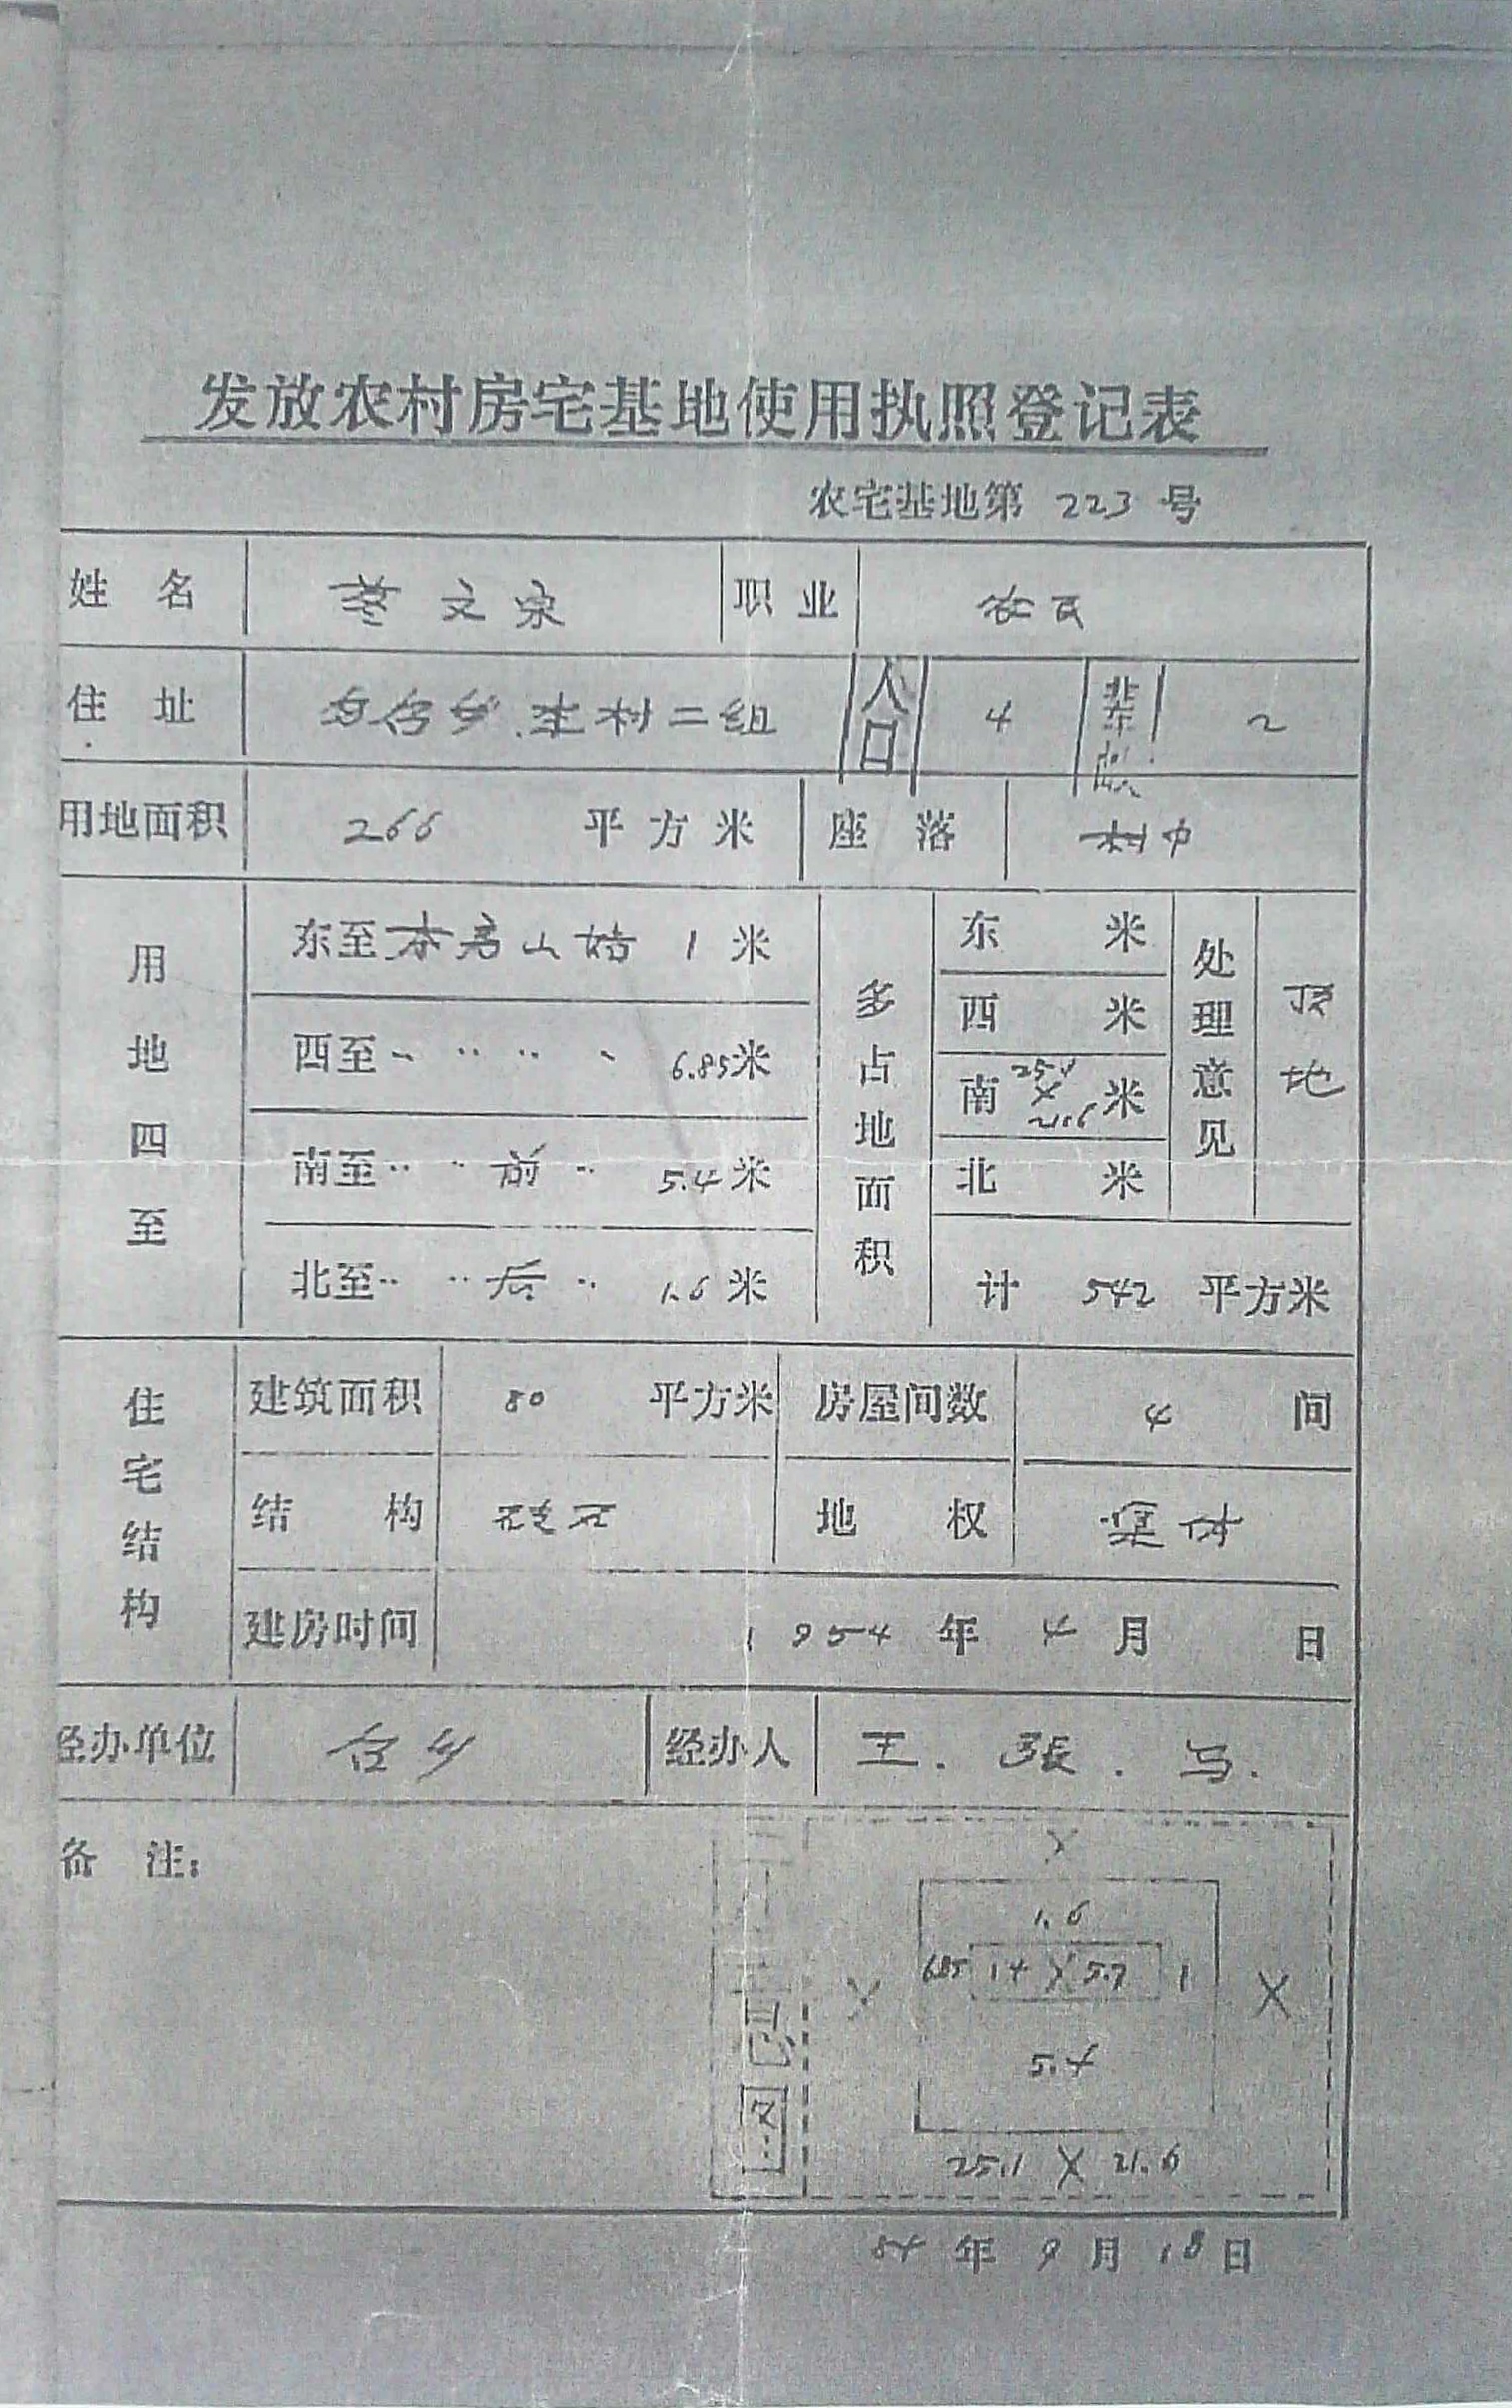 发放农村房宅基地使用执照登记表
农宅基地第 223 号
姓名 文宗 职业 农民
住址 台乡 村二组 人口 4 辈数 2
用地面积 266 平方米 座落 村中
用地四至
东至本房山墙 1 米
西至〃 〃 〃 〃 6.85米
南至〃 〃 前 〃 5.4米
北至〃 〃 后 〃 1.6米
多占地面积
东 米
西 米
南 25.1×21.6 米
北 米
计 542 平方米
处理意见 顶地
住宅结构
建筑面积 80 平方米 房屋间数 4 间
结构 地权 集体
建房时间 1954年4月 日
经办单位 台乡 经办人 王. 张. 马.
备注:
意图
1.6
6.85 14×5.7 1
5.4
25.1 × 21.6
84年9月18日